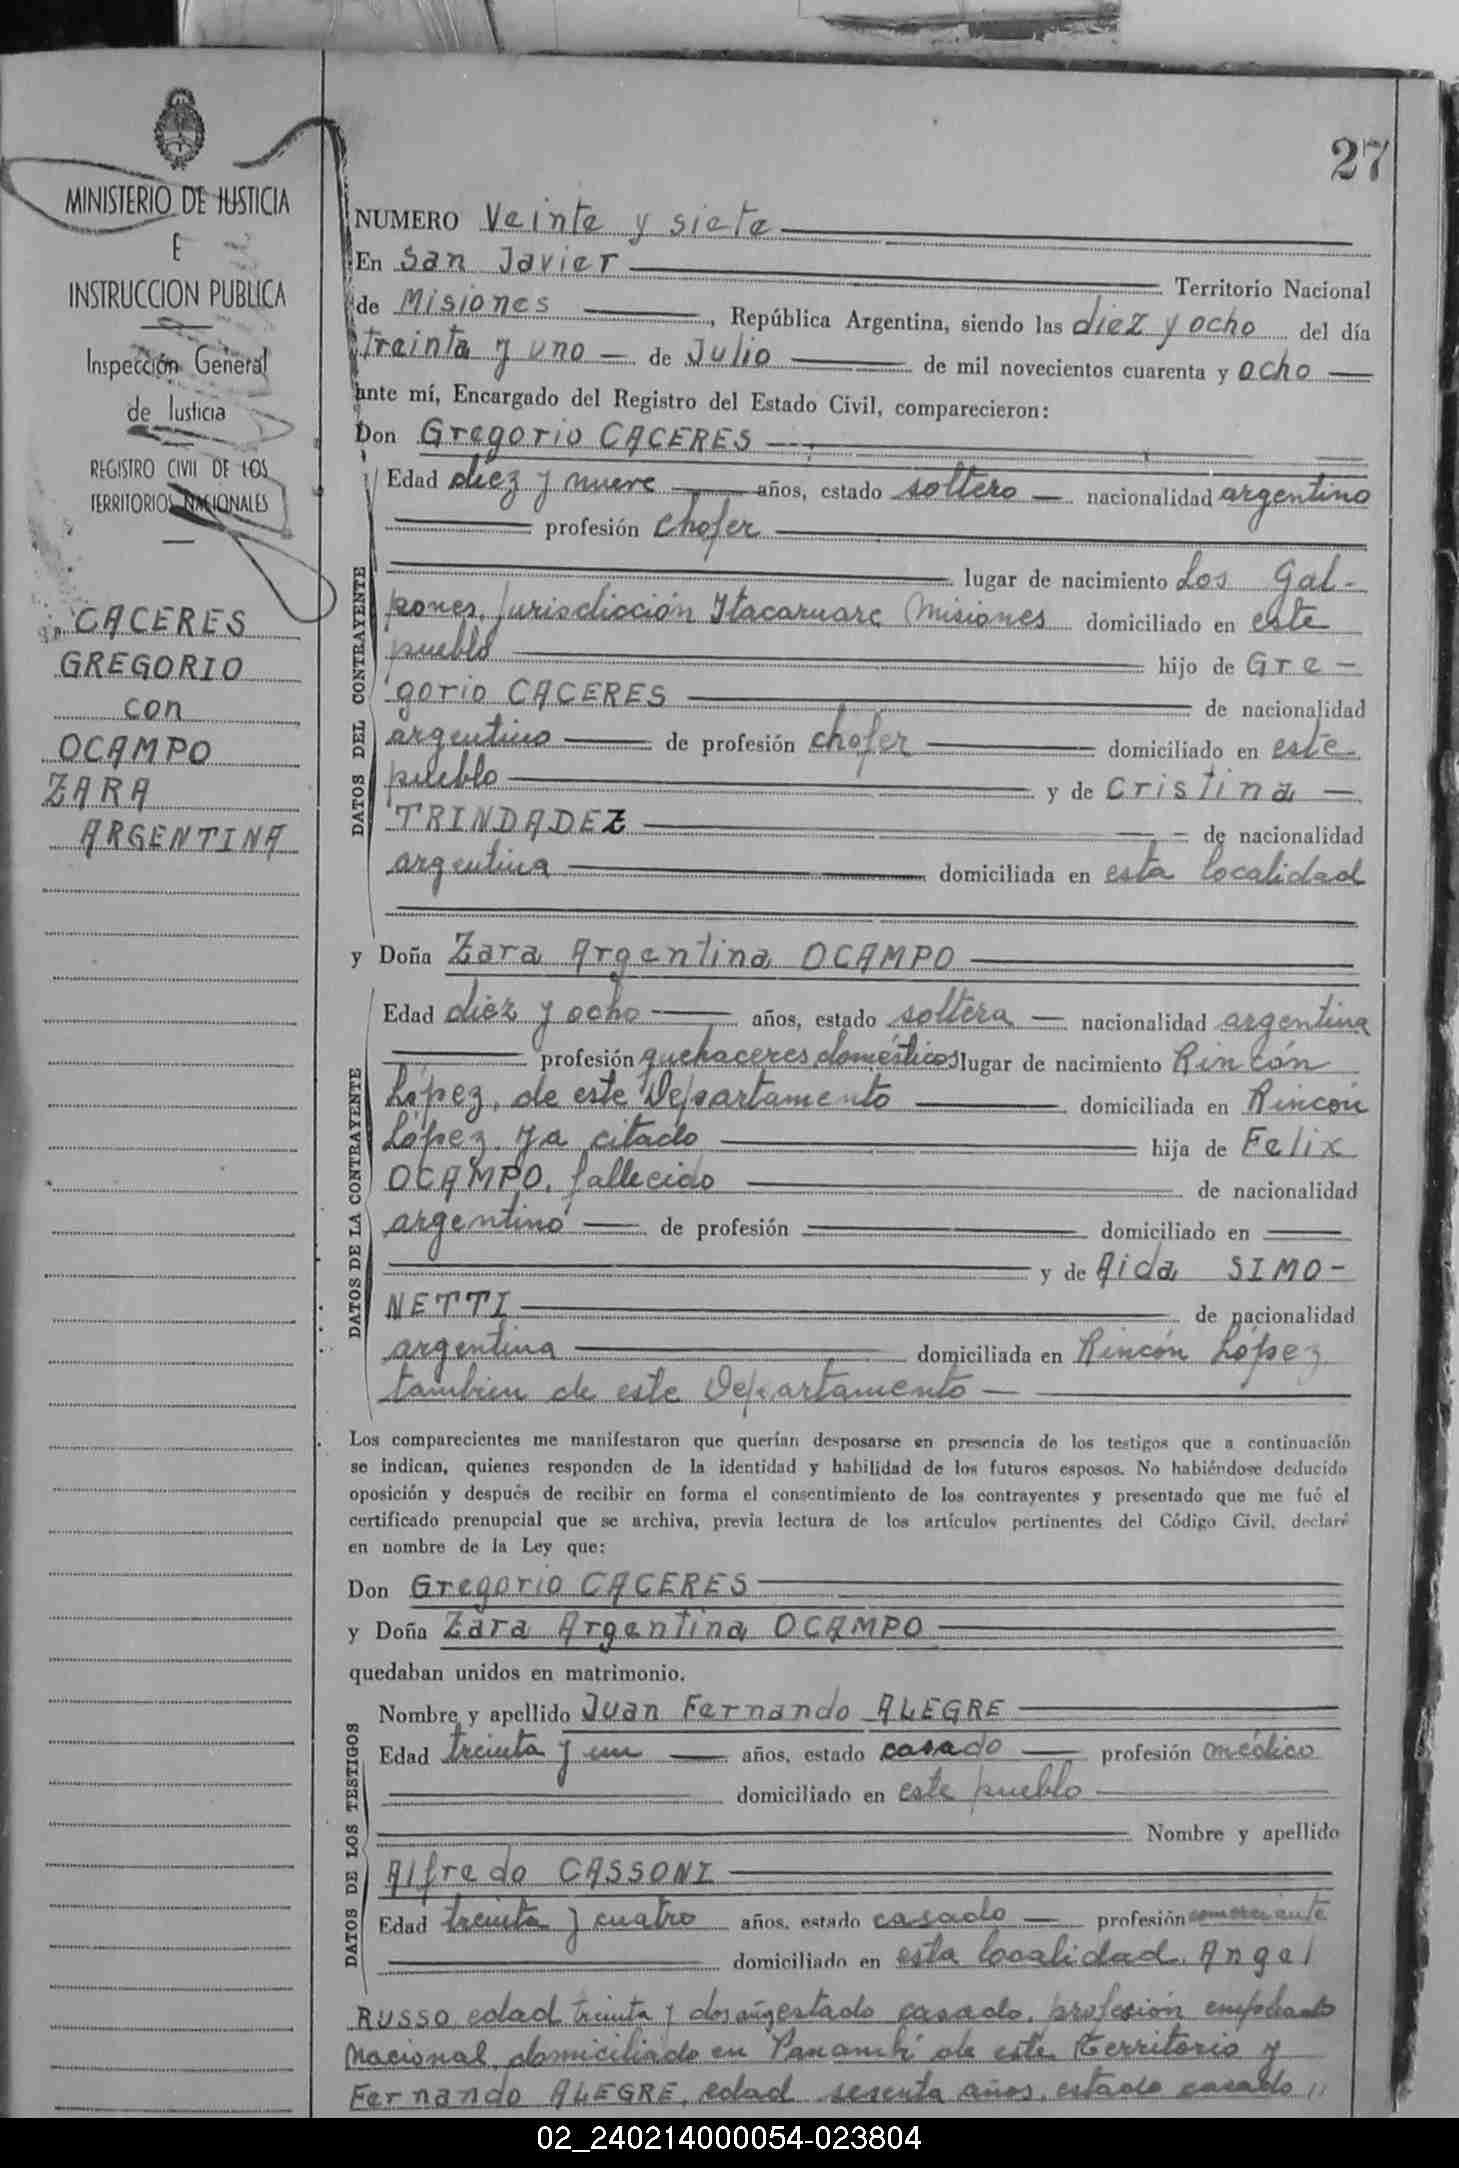 27
MINISTERIO DE JUSTICIA
E
INSTRUCCION PUBLICA
Inspección General
de Justicia
REGISTRO CIVIL DE LOS
TERRITORIOS NACIONALES
CACERES
GREGORIO
con
OCAMPO
ZARA
ARGENTINA
NUMERO Veinte y siete
En San Javier Territorio Nacional
de Misiones, República Argentina, siendo las diez y ocho del día
treinta y uno de Julio de mil novecientos cuarenta y ocho
ante mí, Encargado del Registro del Estado Civil, comparecieron:
Don Gregorio CACERES
DATOS DEL CONTRAYENTE
Edad diez y nueve años, estado soltero nacionalidad argentino
profesión chofer
lugar de nacimiento Los Gal-
pones, jurisdicción Itacaruare Misiones domiciliado en este
pueblo hijo de Gre-
gorio CACERES de nacionalidad
argentino de profesión chofer domiciliado en este
pueblo y de Cristina
TRINDADEZ de nacionalidad
argentina domiciliada en esta localidad
y Doña Zara Argentina OCAMPO
DATOS DE LA CONTRAYENTE
Edad diez y ocho años, estado soltera nacionalidad argentina
profesión quehaceres domésticos lugar de nacimiento Rincón
López, de este Departamento domiciliada en Rincón
López ya citado hija de Felix
OCAMPO, fallecido de nacionalidad
argentino de profesión domiciliado en
y de Aida SIMO-
NETTI de nacionalidad
argentina domiciliada en Rincón López
tambien de este Departamento
Los comparecientes me manifestaron que querían desposarse en presencia de los testigos que a continuación
se indican, quienes responden de la identidad y habilidad de los futuros esposos. No habiéndose deducido
oposición y después de recibir en forma el consentimiento de los contrayentes y presentado que me fué el
certificado prenupcial que se archiva, previa lectura de los artículos pertinentes del Código Civil, declaré
en nombre de la Ley que:
Don Gregorio CACERES
y Doña Zara Argentina OCAMPO
quedaban unidos en matrimonio.
DATOS DE LOS TESTIGOS
Nombre y apellido Juan Fernando ALEGRE
Edad treinta y un años, estado casado profesión médico
domiciliado en este pueblo
Nombre y apellido
Alfredo CASSONI
Edad treinta y cuatro años, estado casado profesión comerciante
domiciliado en esta localidad. Angel
RUSSO, edad treinta y dos años estado casado, profesión empleado
Nacional, domiciliado en Panambí de este Territorio y
Fernando ALEGRE, edad sesenta años, estado casado,
02_240214000054-023804